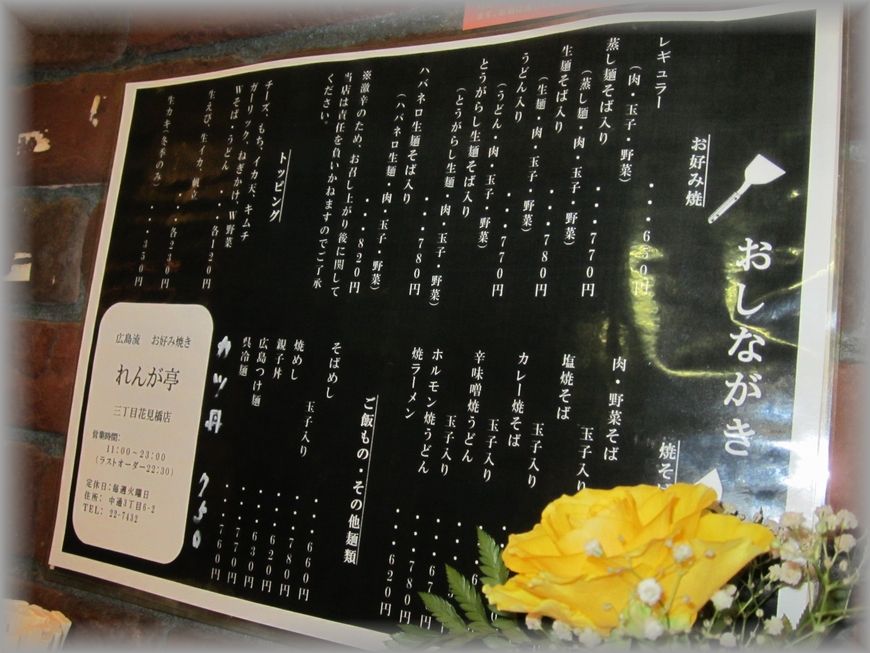 おしながき
お好み焼
レギュラー
(肉・玉子・野菜)
・・・・650円
蒸し麺そば入り
(蒸し麺・肉・玉子・野菜)
・・・770円
生麺そば入り
(生麺・肉・玉子・野菜)
・・・780円
うどん入り
(うどん・肉・玉子・野菜)
・・・770円
とうがらし生麺そば入り
(とうがらし生麺・肉・玉子・野菜)
・・・780円
ハバネロ生麺そば入り
(ハバネロ生麺・肉・玉子・野菜)
・・・・820円
※激辛のため、お召し上がり後に関して
当店は責任を負いかねますのでご了承
ください。
トッピング
チーズ、もち、イカ天、キムチ
ガーリック、ねぎかけ、W野菜
Wそば・うどん ・・・各120円
生えび、生イカ、帆立
・・・・各230円
生カキ(冬季のみ)
・・・・350円
焼そ
肉・野菜そば
玉子入り
塩焼そば
玉子入り
カレー焼そば
玉子入り
辛味噌焼うどん
玉子入り
ホルモン焼うどん
玉子入り
・・・・780円
焼ラーメン
・・・・620円
ご飯もの・その他麺類
そばめし
玉子入り
・・・・660円
焼めし
・・・・780円
親子丼
・・・・620円
広島つけ麺
・・・・630円
呉冷麺
・・・・770円
・・・・760円
カツ丼 750
広島流 お好み焼き
れんが亭
三丁目花見橋店
営業時間:
11:00~23:00
(ラストオーダー22:30)
定休日:毎週火曜日
住所: 中通3丁目6-2
TEL: 22-7432